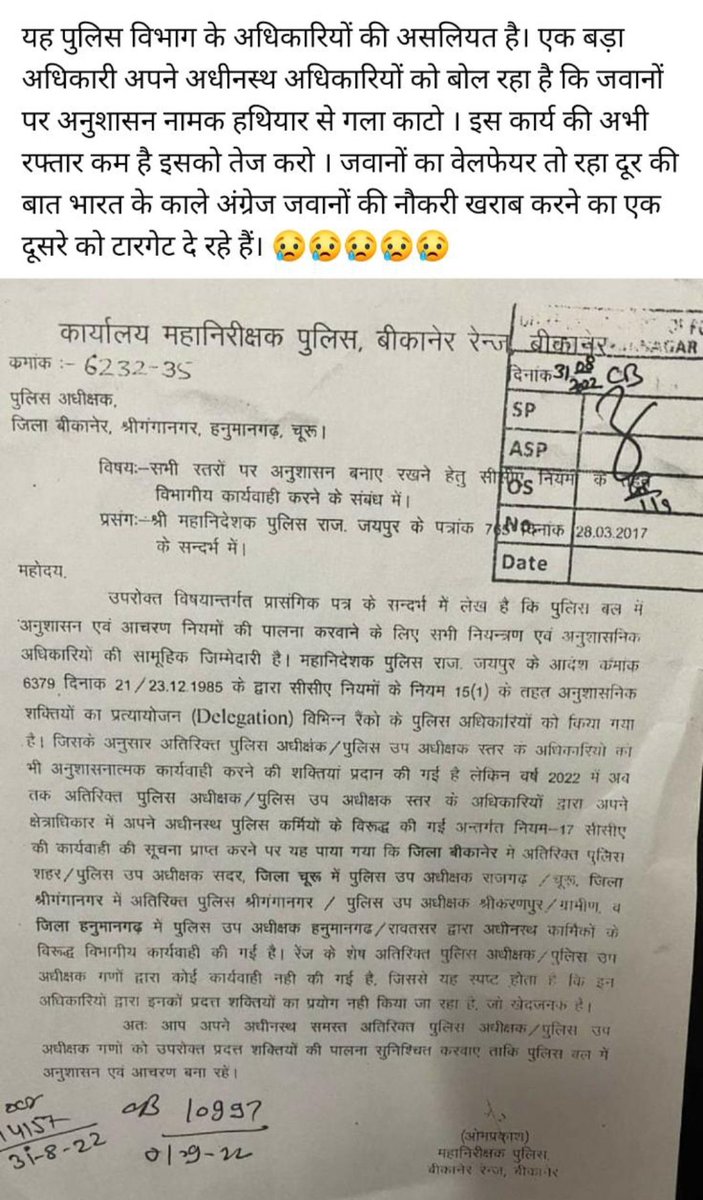 यह पुलिस विभाग के अधिकारियों की असलियत है। एक बड़ा
अधिकारी अपने अधीनस्थ अधिकारियों को बोल रहा है कि जवानों
पर अनुशासन नामक हथियार से गला काटो । इस कार्य की अभी
रफ्तार कम है इसको तेज करो । जवानों का वेलफेयर तो रहा दूर की
बात भारत के काले अंग्रेज जवानों की नौकरी खराब करने का एक
दूसरे को टारगेट दे रहे हैं। 😢😢😢😢😢
कार्यालय महानिरीक्षक पुलिस, बीकानेर रेन्ज, बीकानेर
NAGAR
कमांक :- 6232-35
दिनांक 31/08 CB
पुलिस अधीक्षक,
SP
जिला बीकानेर, श्रीगंगानगर, हनुमानगढ़, चूरू।
ASP
विषयः–सभी रतरों पर अनुशासन बनाए रखने हेतु सीसीए नियम के तहत
OS
विभागीय कार्यवाही करने के संबंध में।
प्रसंगः–श्री महानिदेशक पुलिस राज. जयपुर के पत्रांक दिनांक 28.03.2017
No.
के सन्दर्भ में।
Date
महोदय,
उपरोक्त विषयान्तर्गत प्रासंगिक पत्र के सन्दर्भ में लेख है कि पुलिस बल में
अनुशासन एवं आचरण नियमों की पालना करवाने के लिए सभी नियन्त्रण एवं अनुशासनिक
अधिकारियों की सामूहिक जिम्मेदारी है। महानिदेशक पुलिस राज. जयपुर के आदेश कंमाक
6379 दिनाक 21/23.12.1985 के द्वारा सीसीए नियमों के नियम 15(1) के तहत अनुशासनिक
शक्तियों का प्रत्यायोजन (Delegation) विभिन्न रैंको के पुलिस अधिकारियों को किया गया
है। जिसके अनुसार अतिरिक्त पुलिस अधीक्षक/पुलिस उप अधीक्षक स्तर के अधिकारियो को
भी अनुशासनात्मक कार्यवाही करने की शक्तियां प्रदान की गई है लेकिन वर्ष 2022 में अब
तक अतिरिक्त पुलिस अधीक्षक/पुलिस उप अधीक्षक स्तर के अधिकारियों द्वारा अपने
क्षेत्राधिकार में अपने अधीनस्थ पुलिस कर्मियों के विरूद्ध की गई अन्तर्गत नियम–17 सीसीए
की कार्यवाही की सूचना प्राप्त करने पर यह पाया गया कि जिला बीकानेर मे अतिरिक्त पुलिस
शहर/पुलिस उप अधीक्षक सदर, जिला चूरू में पुलिस उप अधीक्षक राजगढ /चूरू, जिला
श्रीगंगानगर में अतिरिक्त पुलिस श्रीगंगानगर / पुलिस उप अधीक्षक श्रीकरणपुर/ग्रामीण, व
जिला हनुमानगढ़ में पुलिस उप अधीक्षक हनुमानगढ/रावतसर द्वारा अधीनस्थ कार्मिकों के
विरूद्ध विभागीय कार्यवाही की गई है। रेंज के शेष अतिरिक्त पुलिस अधीक्षक/पुलिस उप
अधीक्षक गणों द्वारा कोई कार्यवाही नही की गई है, जिससे यह स्पष्ट होता है कि इन
अधिकारियों द्वारा इनकों प्रदत्त शक्तियों का प्रयोग नही किया जा रहा है, जो खेदजनक है।
अतः आप अपने अधीनस्थ समस्त अतिरिक्त पुलिस अधीक्षक/पुलिस उप
अधीक्षक गणों को उपरोक्त प्रदत्त शक्तियों की पालना सुनिश्चित करवाए ताकि पुलिस बल में
अनुशासन एवं आचरण बना रहें।
14157
31-8-22
OB 10997
01-9-22
(ओमप्रकाश)
महानिरीक्षक पुलिस,
बीकानेर रेन्ज, बीकानेर